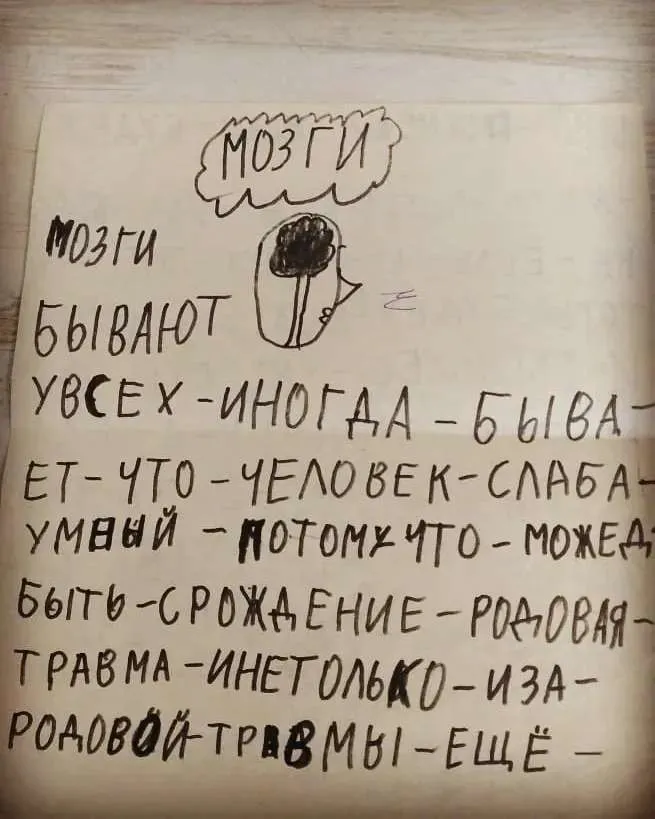 МОЗГИ
МОЗГИ
БЫВАЮТ
УВСЕХ-ИНОГДА-БЫВА-
ЕТ-ЧТО-ЧЕЛОВЕК-СЛАБА-
УМНЫЙ-ПОТОМУЧТО-МОЖЕД
БЫТЬ-СРОЖДЕНИЕ-РОДОВАЯ-
ТРАВМА-ИНЕТОЛЬКО-ИЗА-
РОДОВОЙ-ТРАВМЫ-ЕЩЁ-